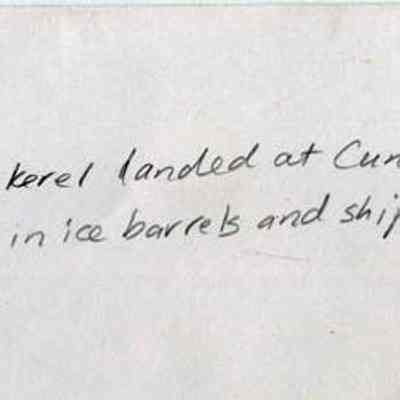 kerel landed at Cun
in ice barrels and ship